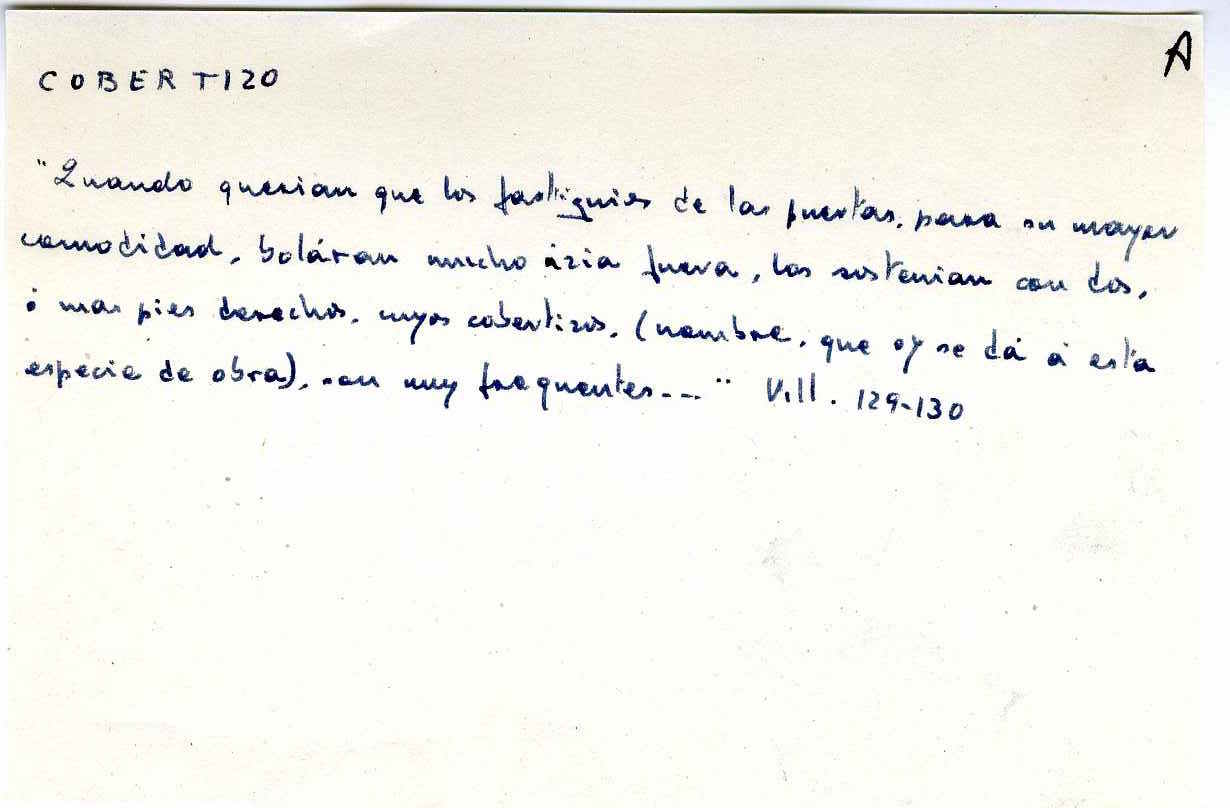 A
COBERTIZO
"Quando querian que los fastiguies de las puertas, para su mayor
comodidad, boláran mucho ázia fuera, los sostenian con dos,
ó mas pies derechos, cuyos cobertizos, (nombre, que oy se dá á esta
especie de obra), son muy frequentes..." Vill. 129-130